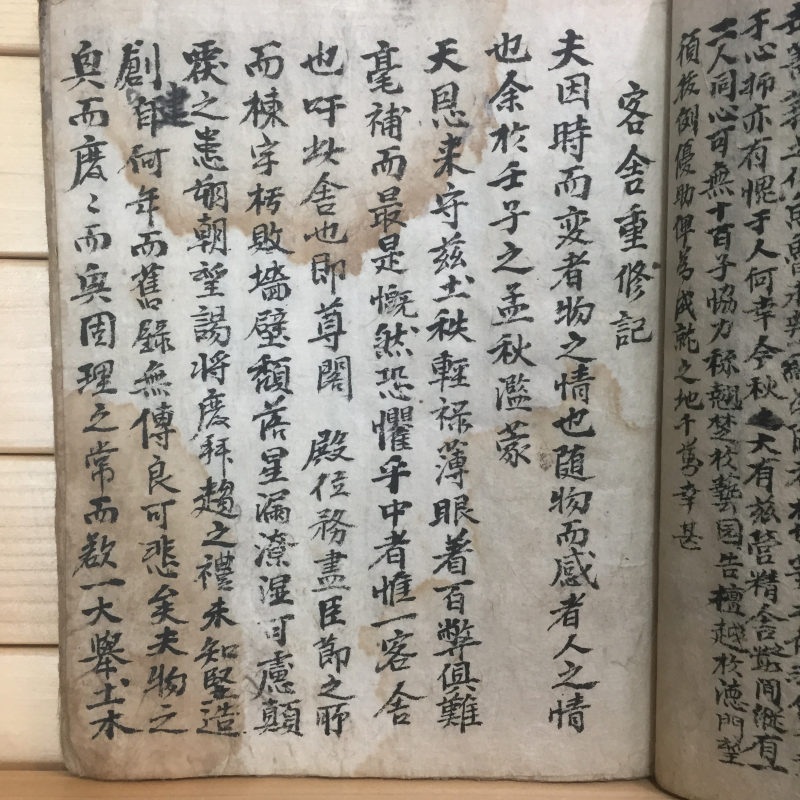 于心師亦有愧于人何幸今秋大有玆營精舍數間縱有一
二人同心可無十百子協力秭翹楚於藝园告檀越於德門望
須拔例優助俾爲成就之地千萬幸甚
客舍重修記
夫因時而変者物之情也随物而感者人之情
也余於壬子之孟秋濫蒙
天恩来守玆土秩輕禄薄眼着百弊俱難
毫補而最是慨然恐懼乎中者惟一客舍
也吁此舍也即尊閣 殿位務盡臣節之所
而棟宇朽敗墻壁頹落星漏潦湿可慮顛
覆之患朔朝望謁将廢拜趨之禮未知堅造
創建自何年而舊錄無傳良可悲矣夫物之
興而廢〻而興固理之常而欲一大舉土木